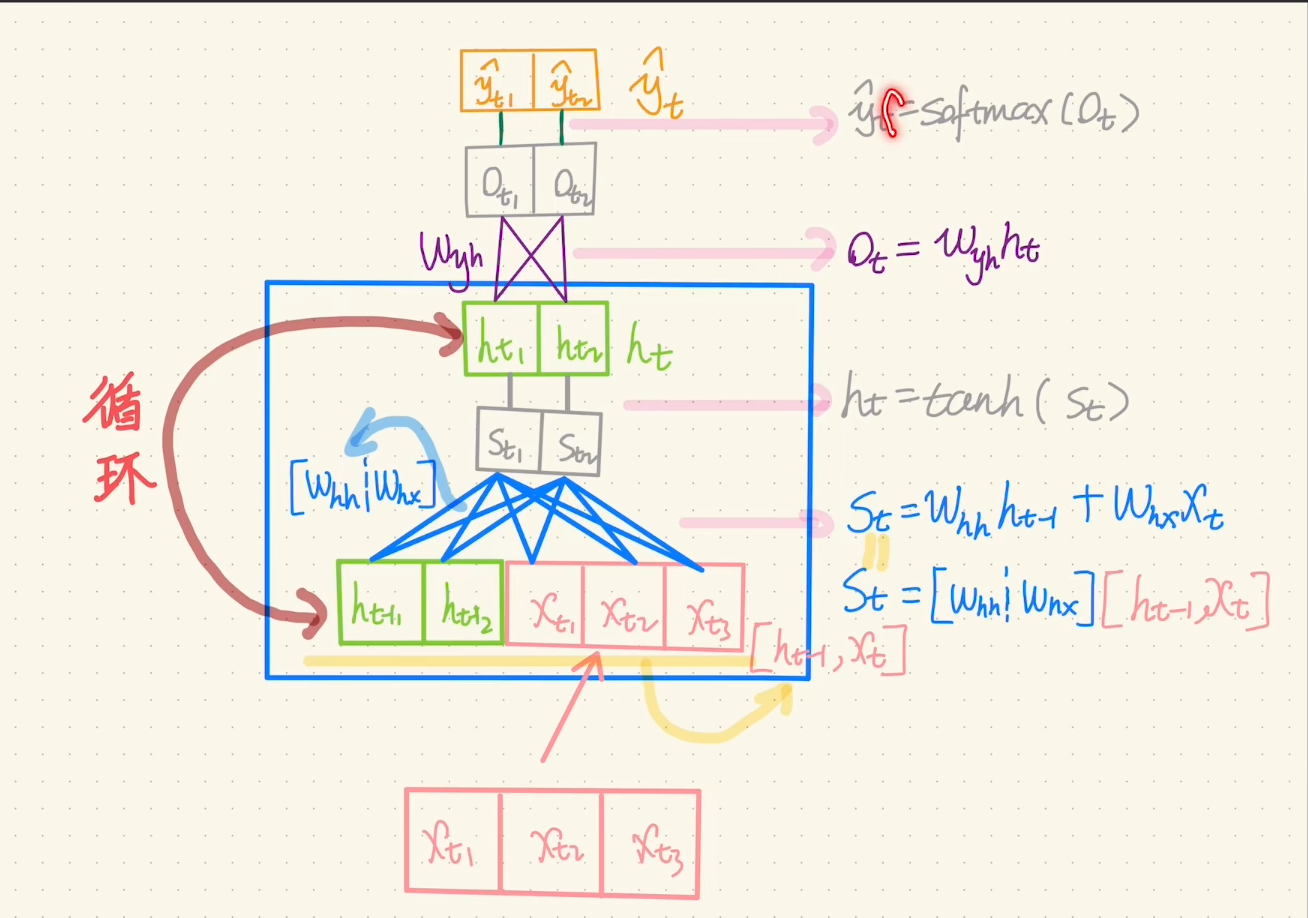 ŷt1 ŷt2 ŷt
ŷt=softmax(Ot)
Ot1 Ot2
Wyh
Ot = Wyh ht
ht1 ht2 ht
循环
ht=tanh( St)
St1 St2
[Whh¦Whx]
St=Whh ht-1 + Whx Xt
St =[Whh¦Whx][ht-1,Xt]
ht-11 ht-12 Xt1 Xt2 Xt3
[ht-1, Xt]
Xt1 Xt2 Xt3